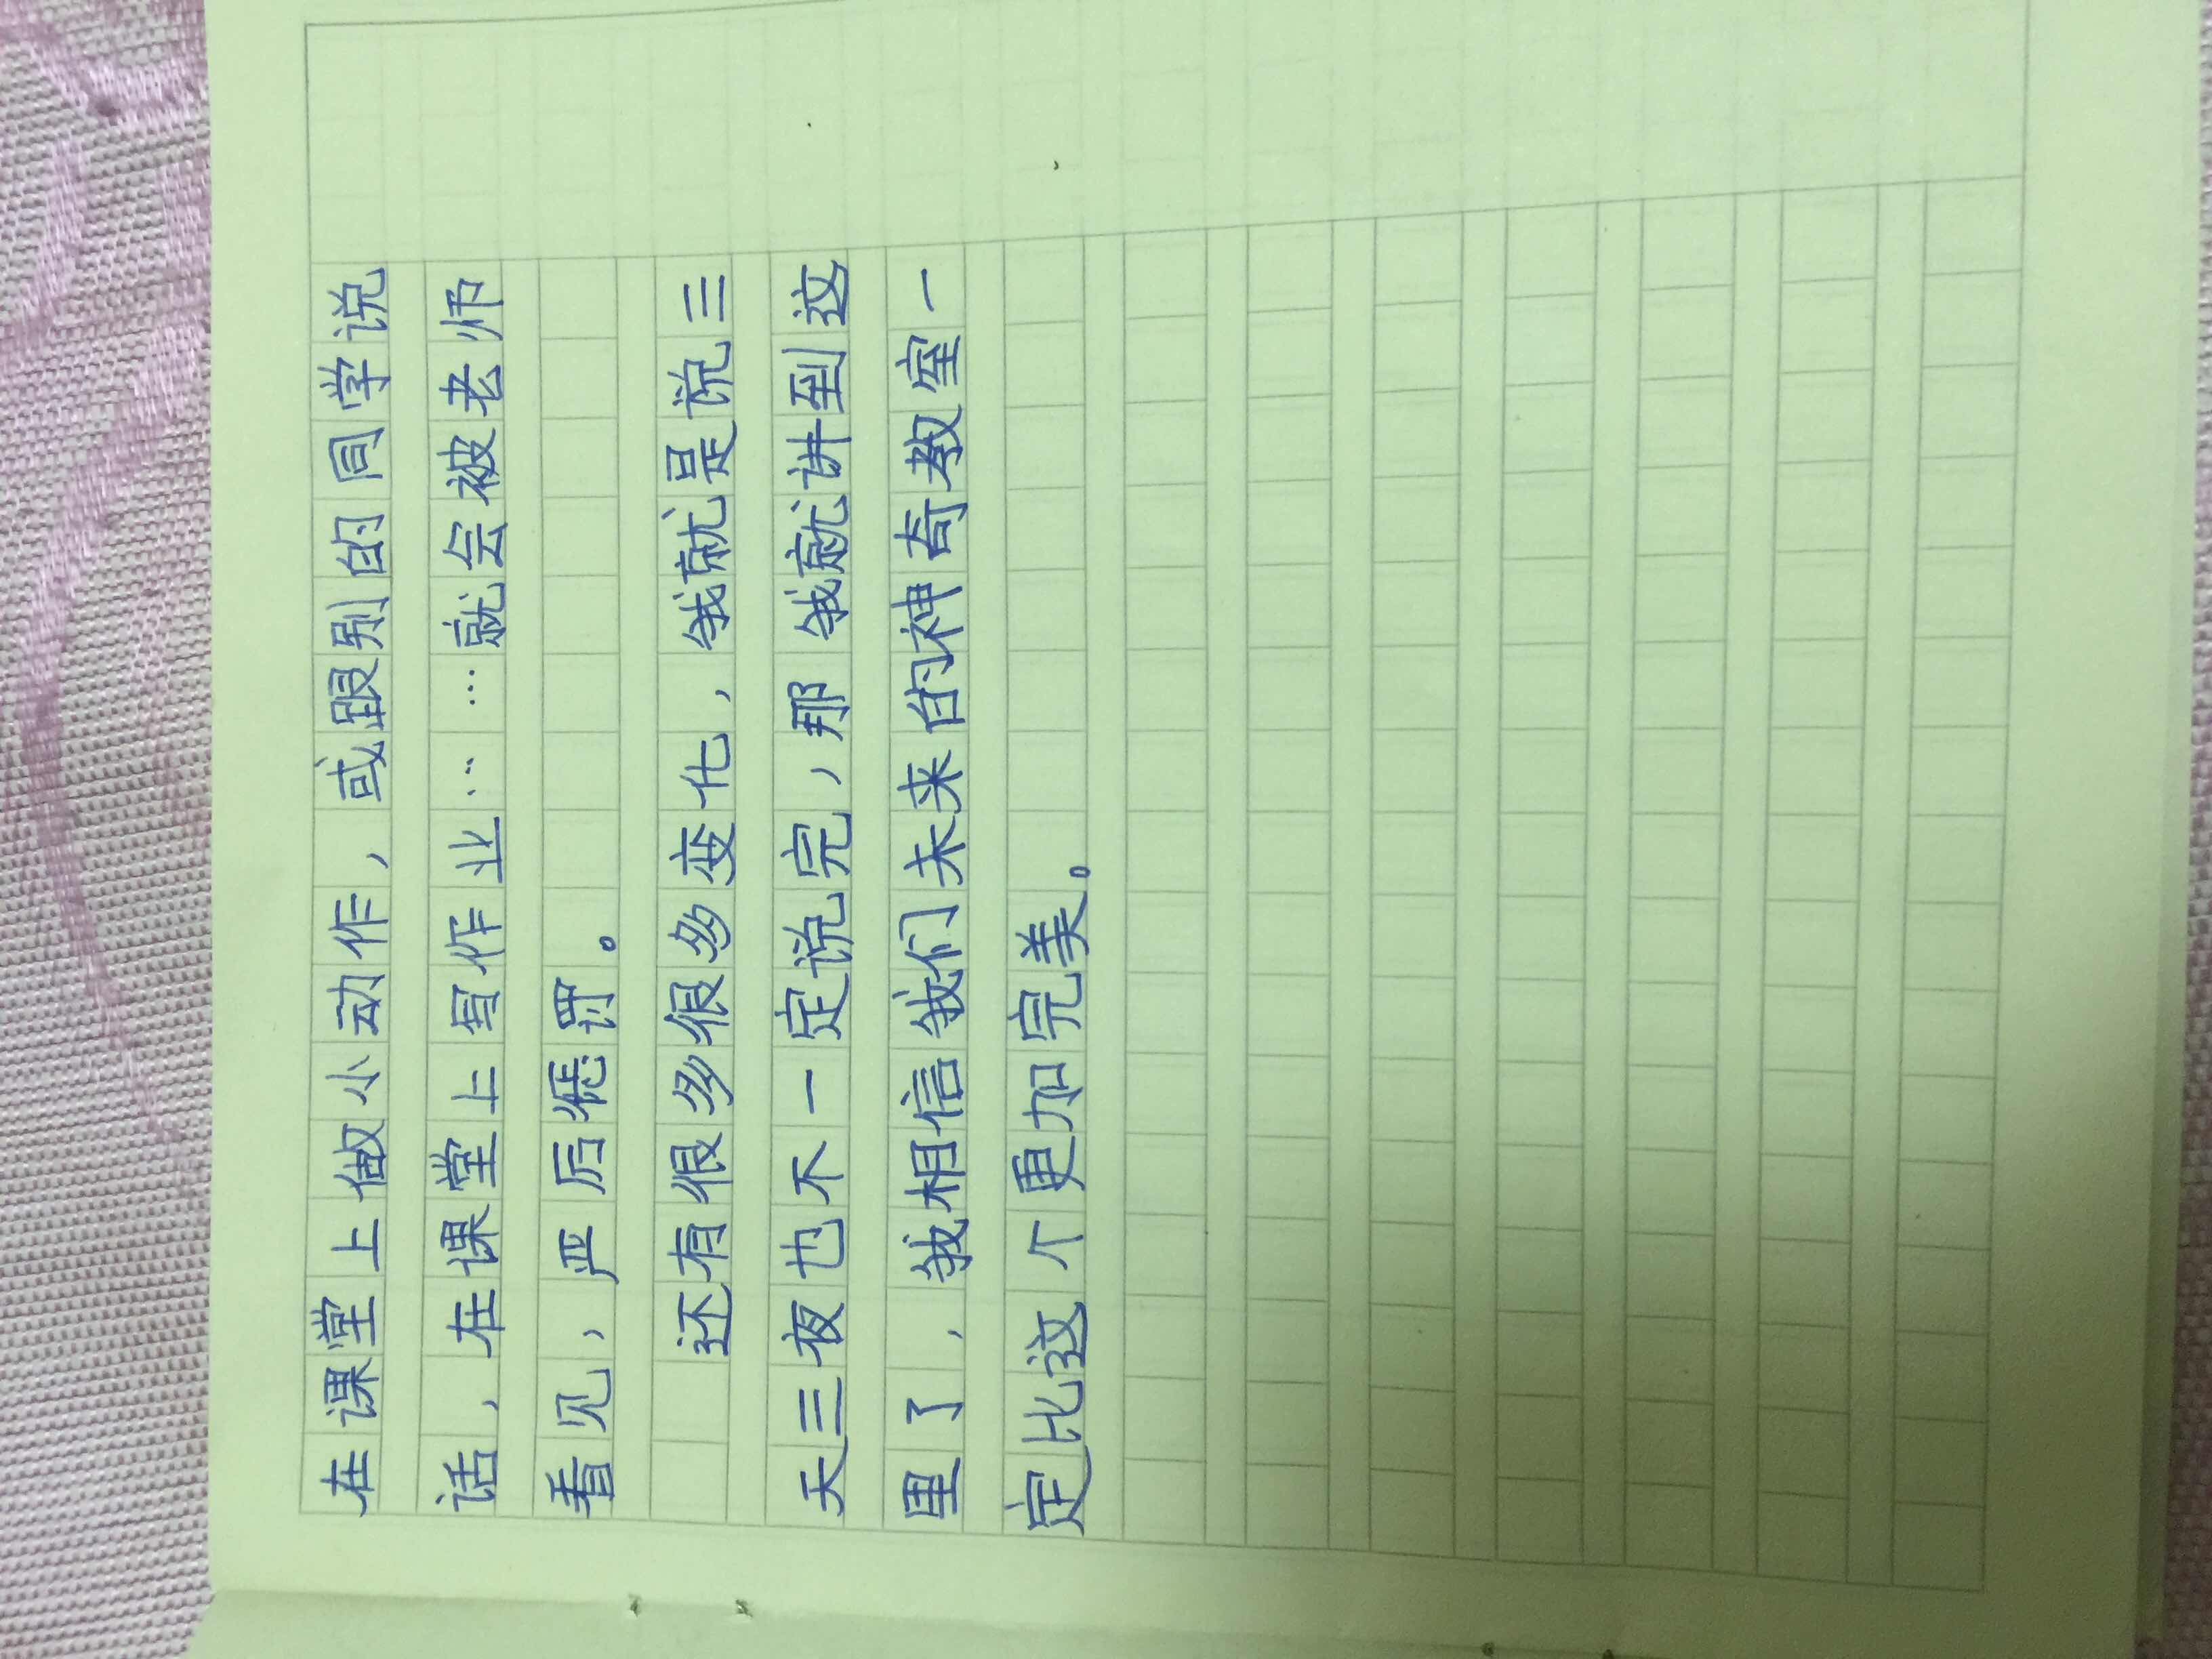 在课堂上做小动作，或跟别的同学说
话，在课堂上写作业……就会被老师
看见，严后惩罚。
还有很多很多变化，我就是说三
天三夜也不一定说完，那我就讲到这
里了，我相信我们未来的神奇教室一
定比这个更加完美。